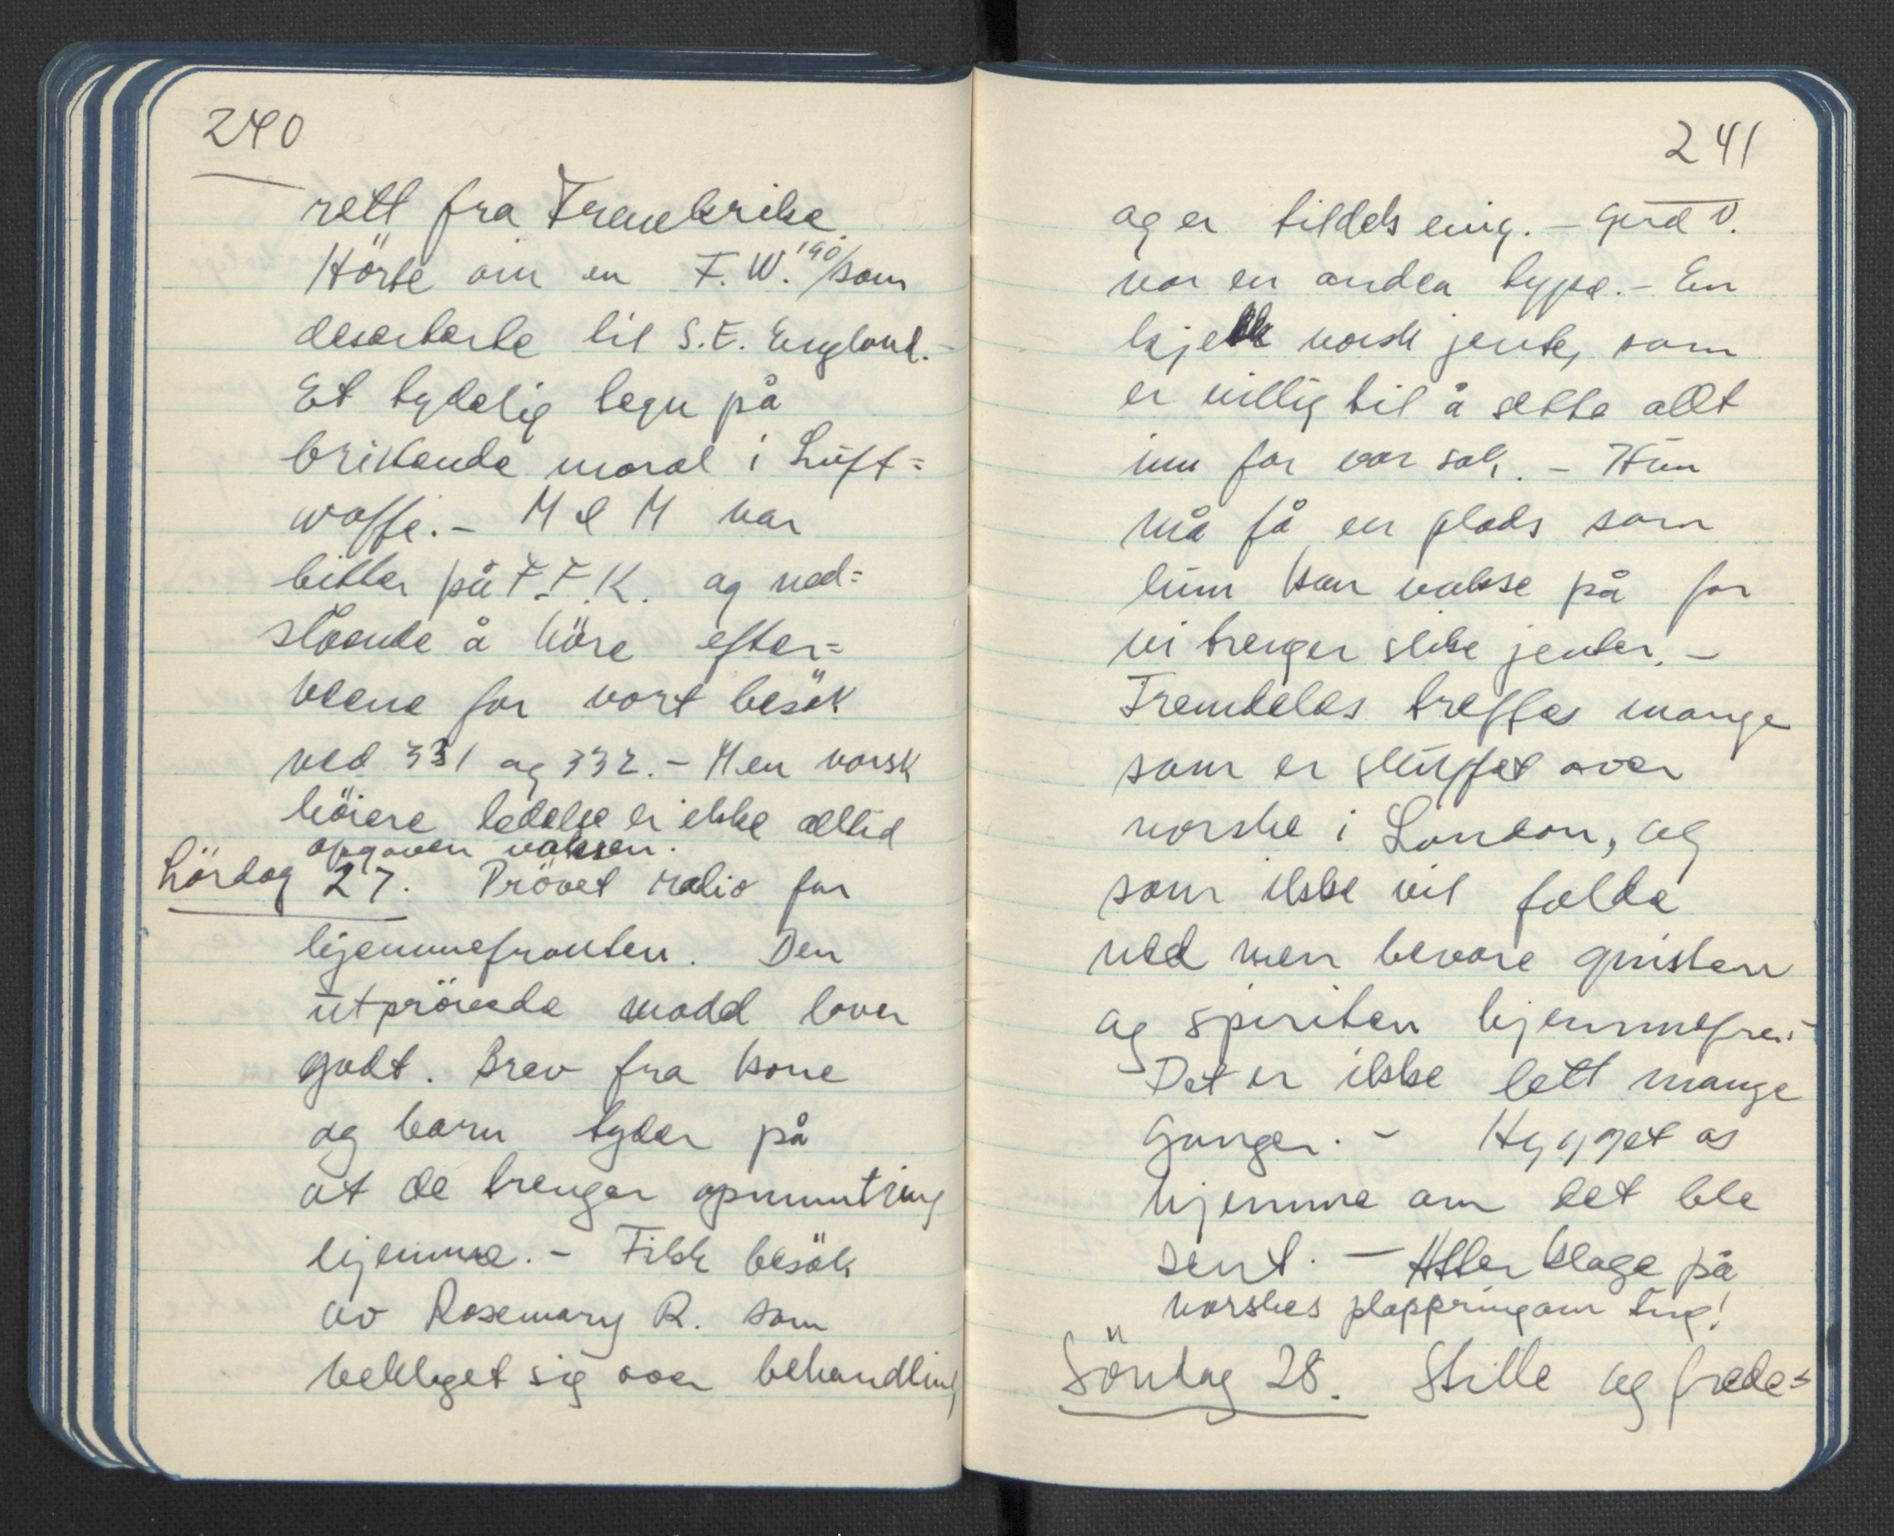 240
rett fra Frankrike.
Hörte om en F.W. '190/ som
deserterte til S.E. England.-
Et tydelig tegn på
bristende moral i Luft=
waffe. - M & M var
bitter på F.F.K. og ned=
slående å höre efter=
veene for vort besök
ved 331 og 332. - Men norsk
höiere ledelse er ikke alltid
opgaven voksen.
Lördag 27. Prövet radio for
hjemmefronten. Den
utprövede modd lover
godt. Brev fra kone
og barn tyder på
at de trenger opmuntring
hjemme. - Fikk besök
av Rosemary R. som
beklaget sig over behandling
241
og er tildels enig. - Gerd V.
var en anden type. - En
kjekk norsk jente, som
er villig til å sette allt
inn for vor sak. - Hun
må få en plads som
hun kan vokse på for
vi trenger slike jenter. -
Fremdeles treffes mange
som er skuffet over
norske i London, og
som ikke vil falde
ned men bevare gnisten
og spiriten hjemmefra.-
Det er ikke lett mange
ganger. - Hygget os
hjemme om det ble
sent. - Atter klage på
norskes plappring om ting!
Söndag 28. Stille og frede-